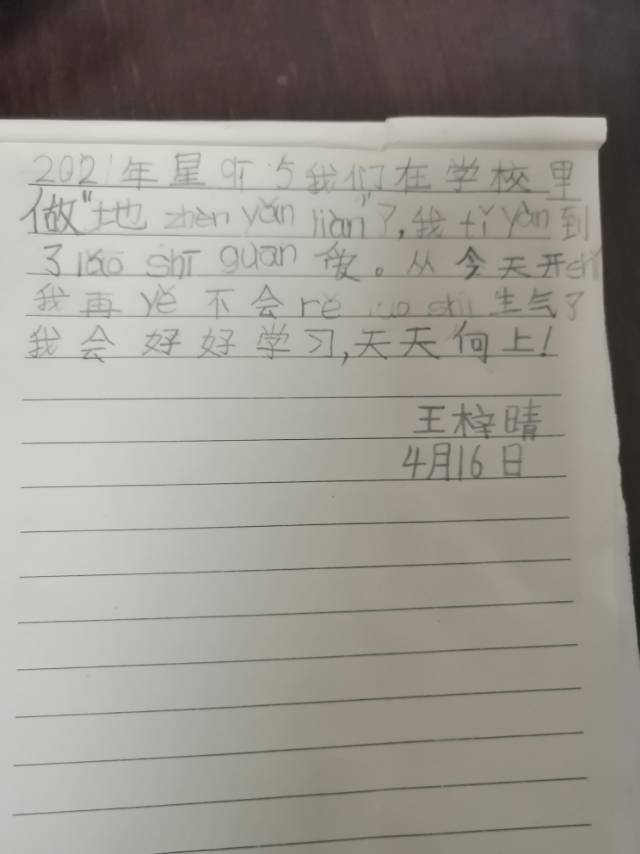 2021年星qī5我们在学校里
做"地zhèn yǎn liàn"?,我tǐ yàn到
了lǎo shī guān 爱。从今天开shǐ
我再yě不会rě lǎo shī生气了
我会好好学习,天天向上!
王梓晴
4月16日